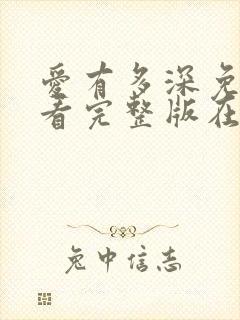 愛有多深免
看完整版在
兔中信志